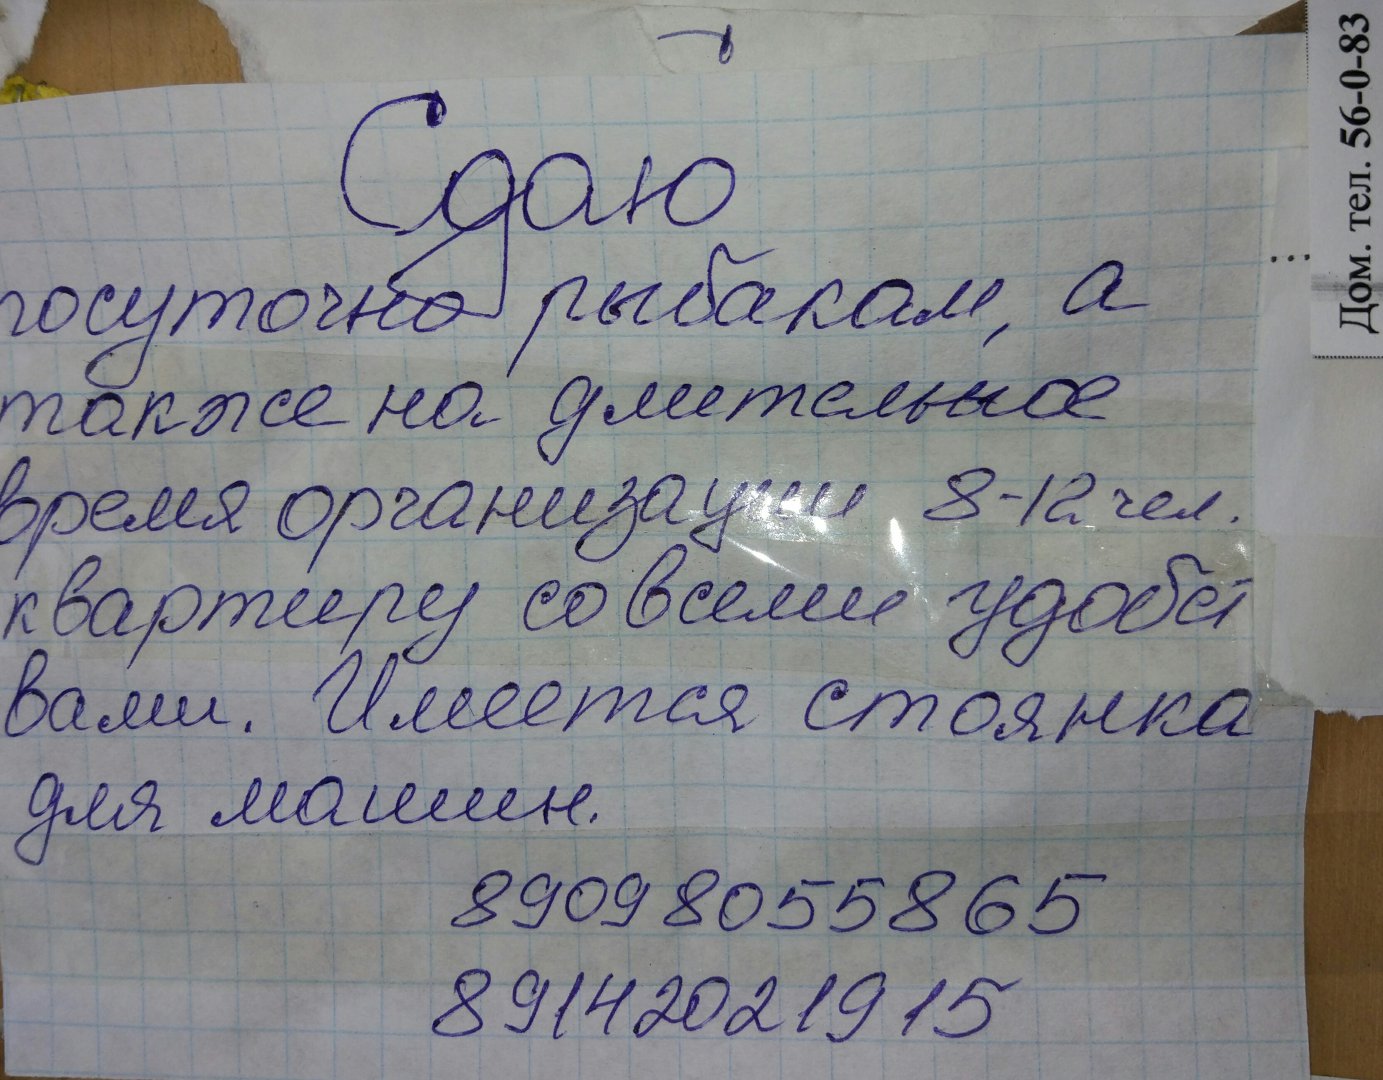 Сдаю
посуточно рыбакам, а
также на длительное
время организации 8-12 чел.
квартиру со всеми удобст
вами. Имеется стоянка
для машин.
89098055865
89142021915
Дом. тел. 56-0-83